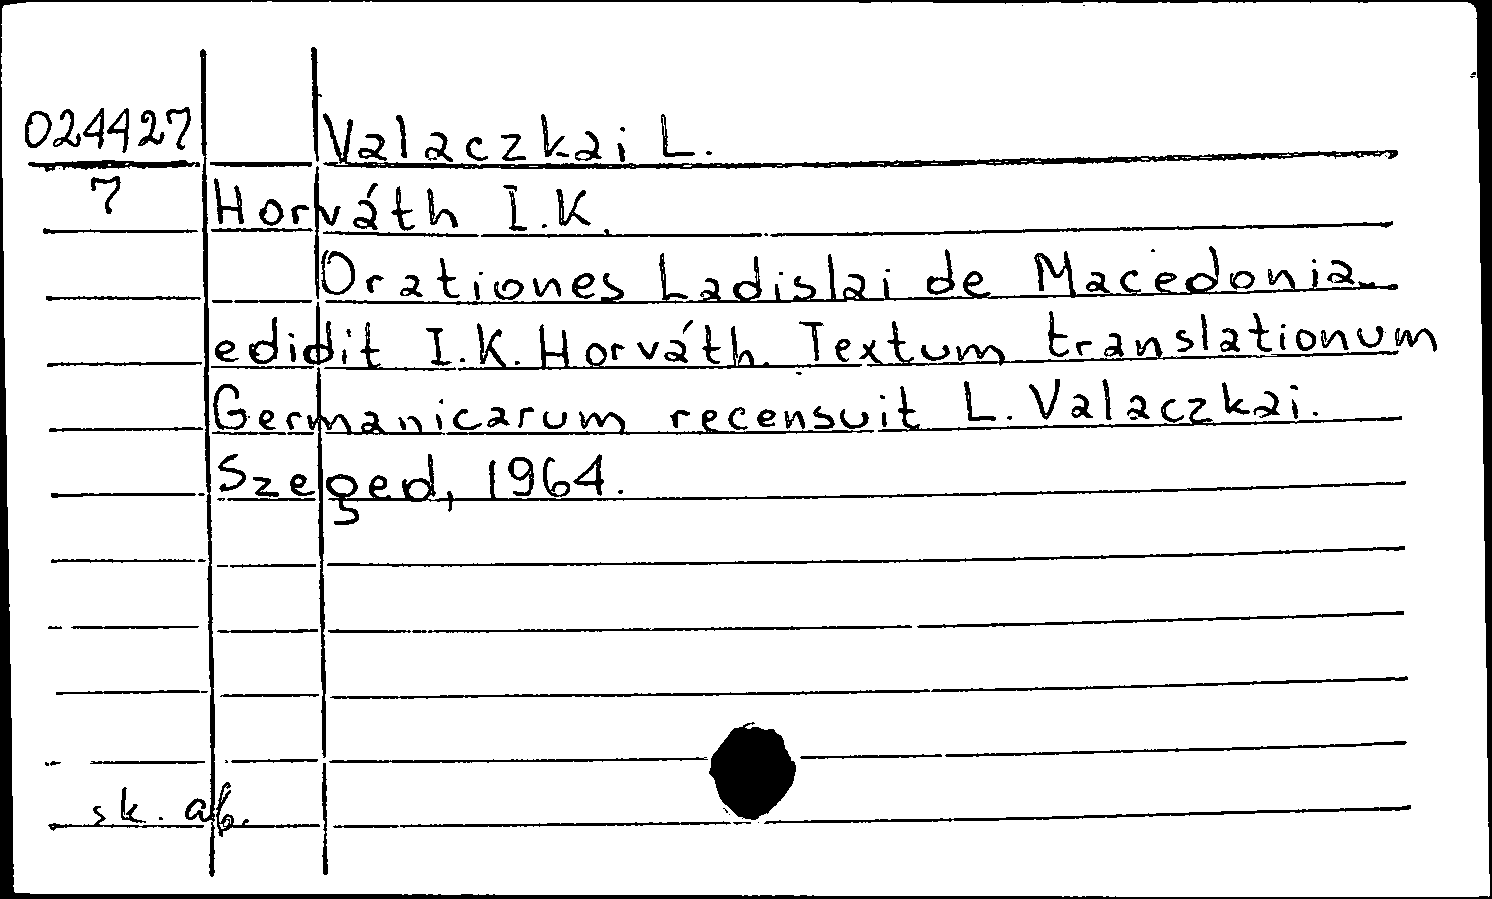 024427 Valaczkai L.
7 Horváth I.K.
Orationes Ladislai de Macedonia
edidit I.K. Horváth. Textum translationum
Germanicarum recensuit L. Valaczkai.
Szeged, 1964.
sk. ab.